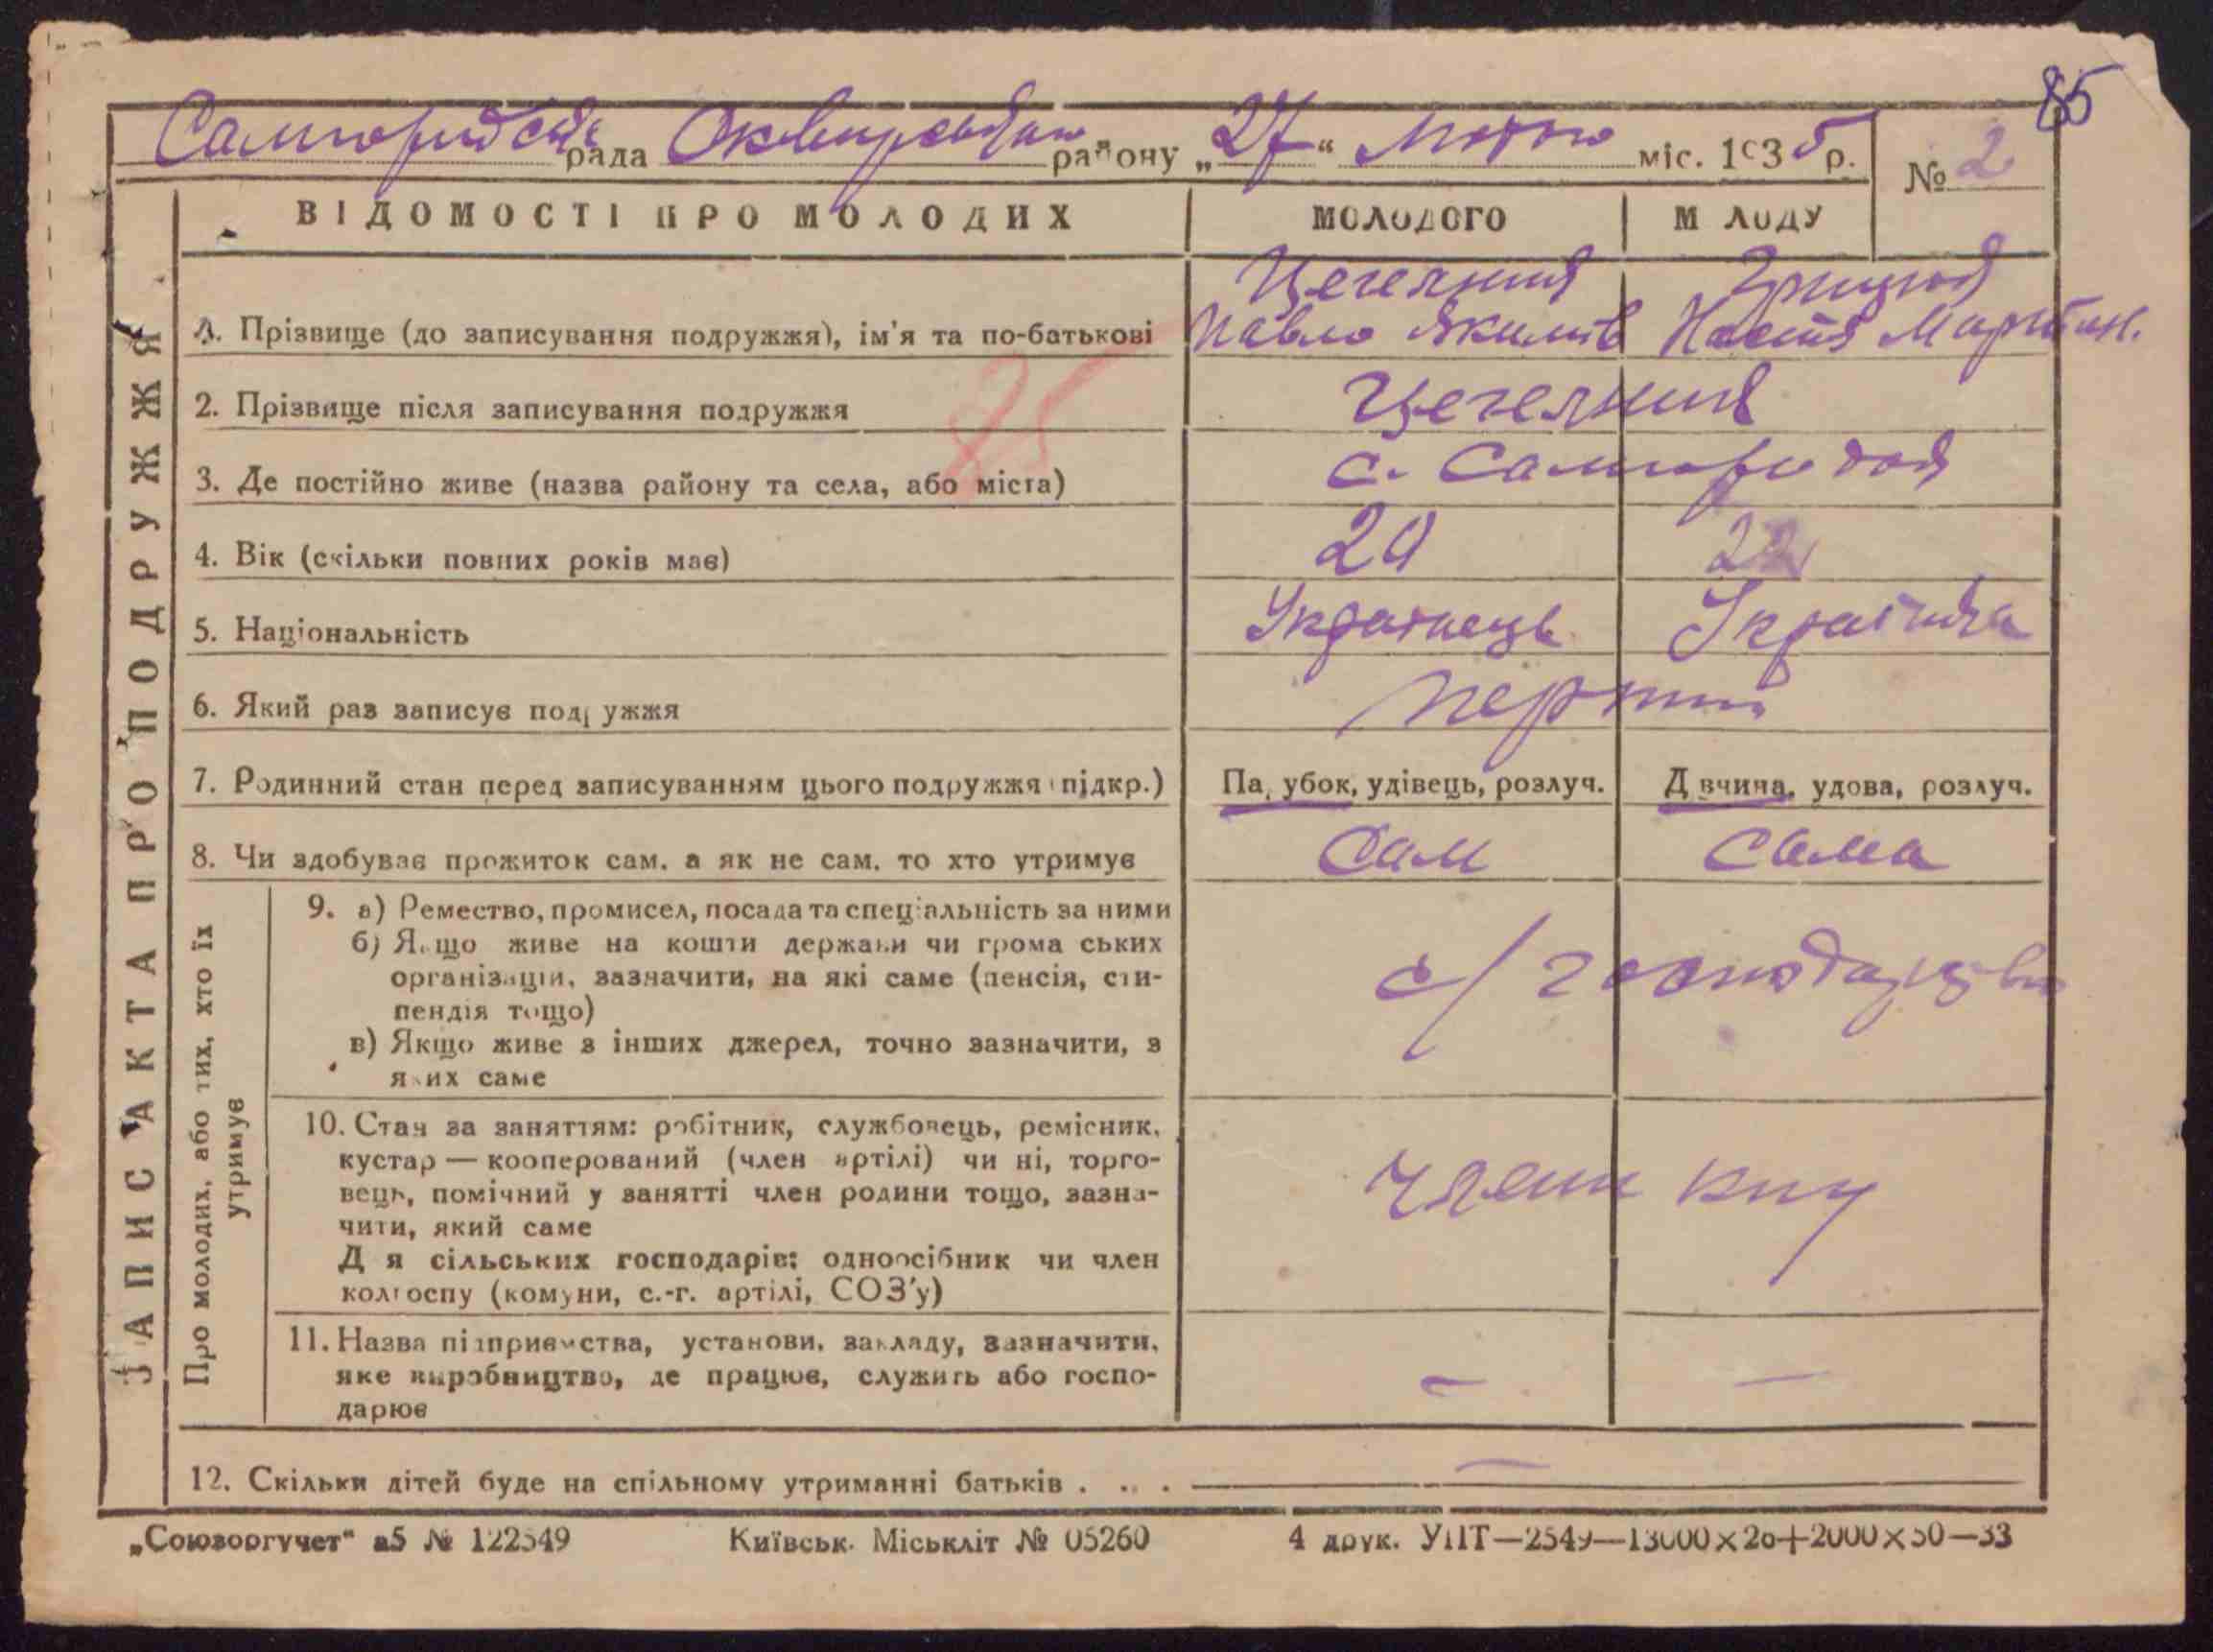 85
Самгородська рада Сквирського району „27“ лютого міс. 1935 р. № 2
ВІДОМОСТІ ПРО МОЛОДИХ МОЛОДОГО МОЛОДУ
1. Прізвище (до записування подружжя), ім'я та по-батькові
Павло Якимів Настя Мартин.
2. Прізвище після записування подружжя
25
3. Де постійно живе (назва району та села, або міста) с. Самгородок
4. Вік (скільки повних років має) 22
5. Національність Українець Українка
6. Який раз записує подружжя перший
7. Родинний стан перед записуванням цього подружжя (підкр.) Парубок, удівець, розлуч. Дівчина, удова, розлуч.
8. Чи здобуває прожиток сам, а як не сам, то хто утримує Сам Сама
9. а) Ремество, промисел, посада та спеціальність за ними
б) Якщо живе на кошти держави чи громадських
організацій, зазначити, на які саме (пенсія, сти-
пендія тощо)
в) Якщо живе з інших джерел, точно зазначити, з
яких саме
с/господарство
10. Стан за заняттям: робітник, службовець, ремісник,
кустар — кооперований (член артілі) чи ні, торго-
вець, помічний у занятті член родини тощо, зазна-
чити, який саме
Для сільських господарів: одноосібник чи член
колгоспу (комуни, с.-г. артілі, СОЗ'у)
члени
11. Назва підприємства, установи, закладу, зазначити,
яке виробництво, де працює, служить або госпо-
дарює
— —
12. Скільки дітей буде на спільному утриманні батьків . . . . —
ЗАПИС АКТА ПРО ПОДРУЖЖЯ
Про молодих, або тих, хто їх
утримує
„Союзоргучет“ а5 № 122549 Київськ. Міськліт № 05260 4 друк. УПТ—2549—13000×20+2000×50—33